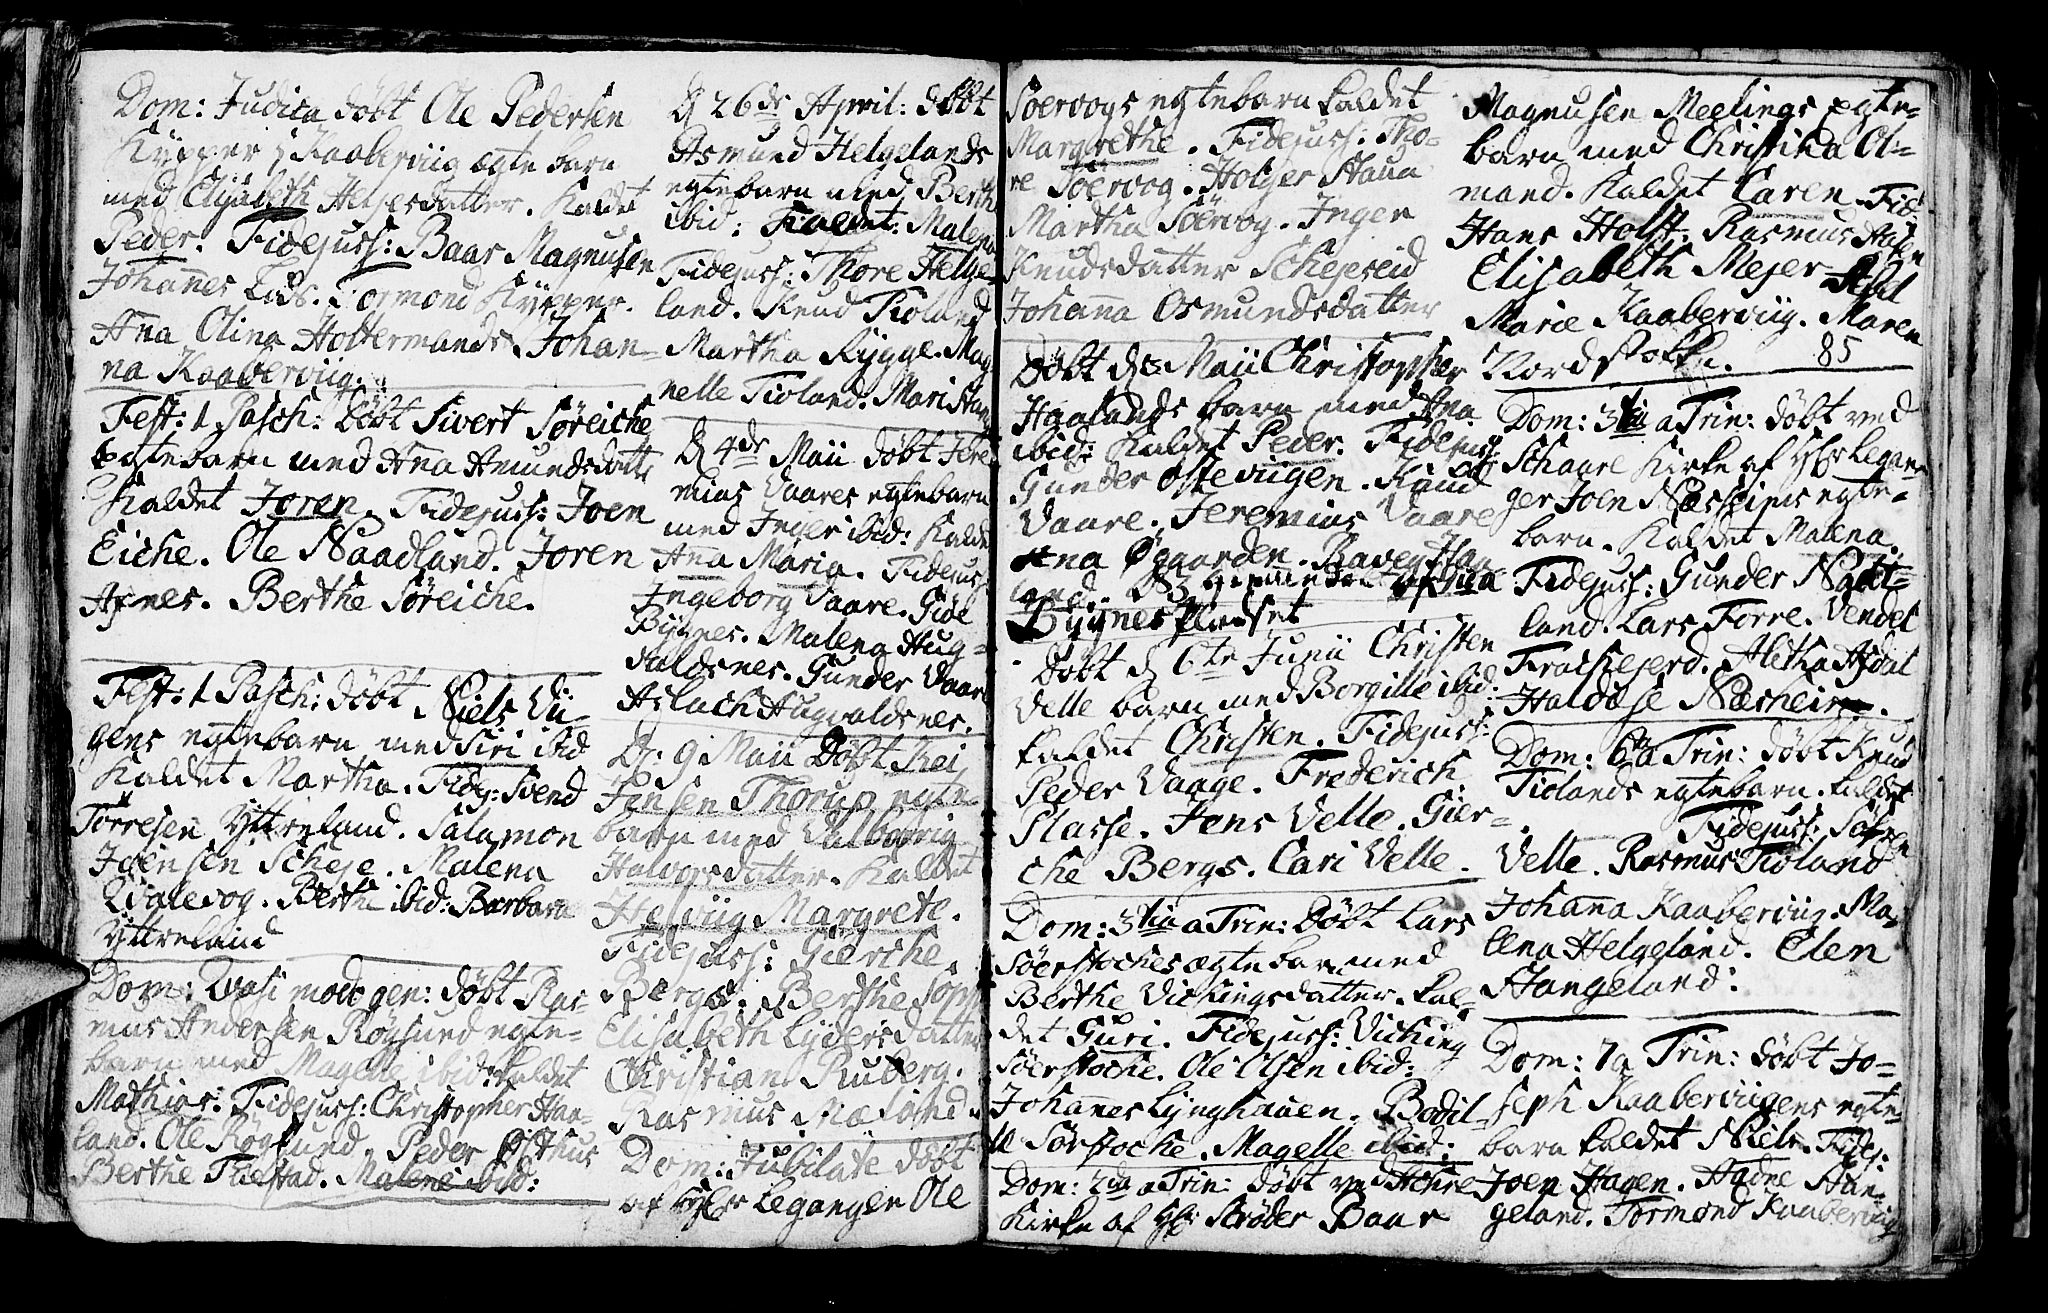 Dom: Judica döbt Ole Pedersen
Kÿpper i Kaaberviig ægte barn
med Elisabeth Heljesdatter. Kaldet
Peder. Fidejuss: Baar Magnusen
Johannes Tormond Kÿpper.
Ana Olina Holtermands. Johan-
na Kaaberviig.
Fest: 1 Pasch: döbt Sivert Söreiche
egtebarn med Ana Amundsdatt:
Kaldet Joren. Fidejuss: Joen
Eiche. Ole Naadland. Joren
Axnes. Berthe Söreiche.
Fest: 1 Pasch: döbt Niels Vii-
gens egtebarn med Siri ibid
Kaldet Martha. Fidej: Svend
Törresen Yttreland. Salamon
Joensen Scheje. Malena
Qvalevog. Berthe ibid: Barbara
Yttreland
Dom: Qvasi modo gen: döbt Ras-
mus Andersen Rögsund egte-
barn med Magelle ibid: kaldet
Mathias: Fidejuss: Christopher Haa-
land. Ole Rögsund. Peder Östhus
Berthe Malene ibid:
D 26de April: döbt
Asmund Helgelands
egtebarn med Berthe
ibid: Kaldet. Malena
Fidejuss: Thore Helge-
land. Knud Tioland
Martha Rygge. Mag
nelle Tioland. Mari
D 4de Maii döbt Jere
mias Vaares egtebarn
med Inger ibid: Kaldet
Ana Maria. Fidejuss:
Ingeborg Vaare. Gide
Bÿgnes. Malena Hug-
valdsnes. Gunder Vaare
Aslach Hugvaldsnes.
D: 9 Maii Döbt Kei
Jensen Thorup egte-
barn med Valborrig
Halvorsdatter. Kaldet
Helviig Margrete.
Fidejuss: Gierche
Bergs. Berthe
Elisabeth Lÿdersdatter
Christian Ruberg.
Rasmus Mæland
Dom: Jubilate döbt
af Hr Leganger Ole
Söervogs egtebarn kaldet
Margrethe. Fidejuss: Tho-
re Söervog. Holger Staua
Martha Söervog. Inger
Knudsdatter Schejeseid
Johanna Osmundsdatter
Döbt d 3 Maii Christopher
Haalands barn med Ana
ibid: Kaldet Peder. Fidejuss:
Gunder Ostevigen. Knud
Vaare. Jeremias Vaare
Ana Øgaarden.
land.
Bÿgnes Pladset
Döbt d 6te Junii Christen
Velle barn med Borgille ibid:
kaldet Christen. Fidejuss:
Peder Vaage. Frederich
Plasse. Jens Velle. Gier-
che Bergs. Cari Velle.
Dom: 3tia a Trin: Döbt Lars
Söerstoches ægte barn med
Berthe Vichingsdatter. kal-
det Guri. Fidejuss: Viching
Söerstoche. Ole Olsen ibid:
Johannes Lÿnghauen. Bodil-
le Sörstoche. Magelle ibid:
Dom: 2da a Trin: döbt ved Achre
Kirke af Hr: Ströder Baar
Magnusen Meelings egte-
barn med Christina Ol-
mand. Kaldet Caren. Fid
Hans Holst. Rasmus
Elisabeth Mejer
Marie Kaaberviig. Maren
Nordstokke. 85
Dom: 3tia a Trin: döbt ved
Schaare Kirke af Hr Legan-
ger Joen Næsheims egte-
barn. Kaldet Malena.
Fidejuss: Gunder
land. Lars Förre. Vendel
Frackejerd. Aletha Afdal
Haldose Næsheim.
Dom: 6ta a Trin: döbt Knud
Tiolands egtebarn kaldet
Fidejuss: Sören
Velle. Rasmus Tioland
Johanna Kaaberviig. Ma-
lena Helgeland. Elen
Stangeland:
Dom: 7a Trin: döbt Jo-
seph Kaaberviigens egte-
barn kaldet Niels. Fidej:
Joen Hagen. Hadne Stan-
geland. Tormond Kaaberviig